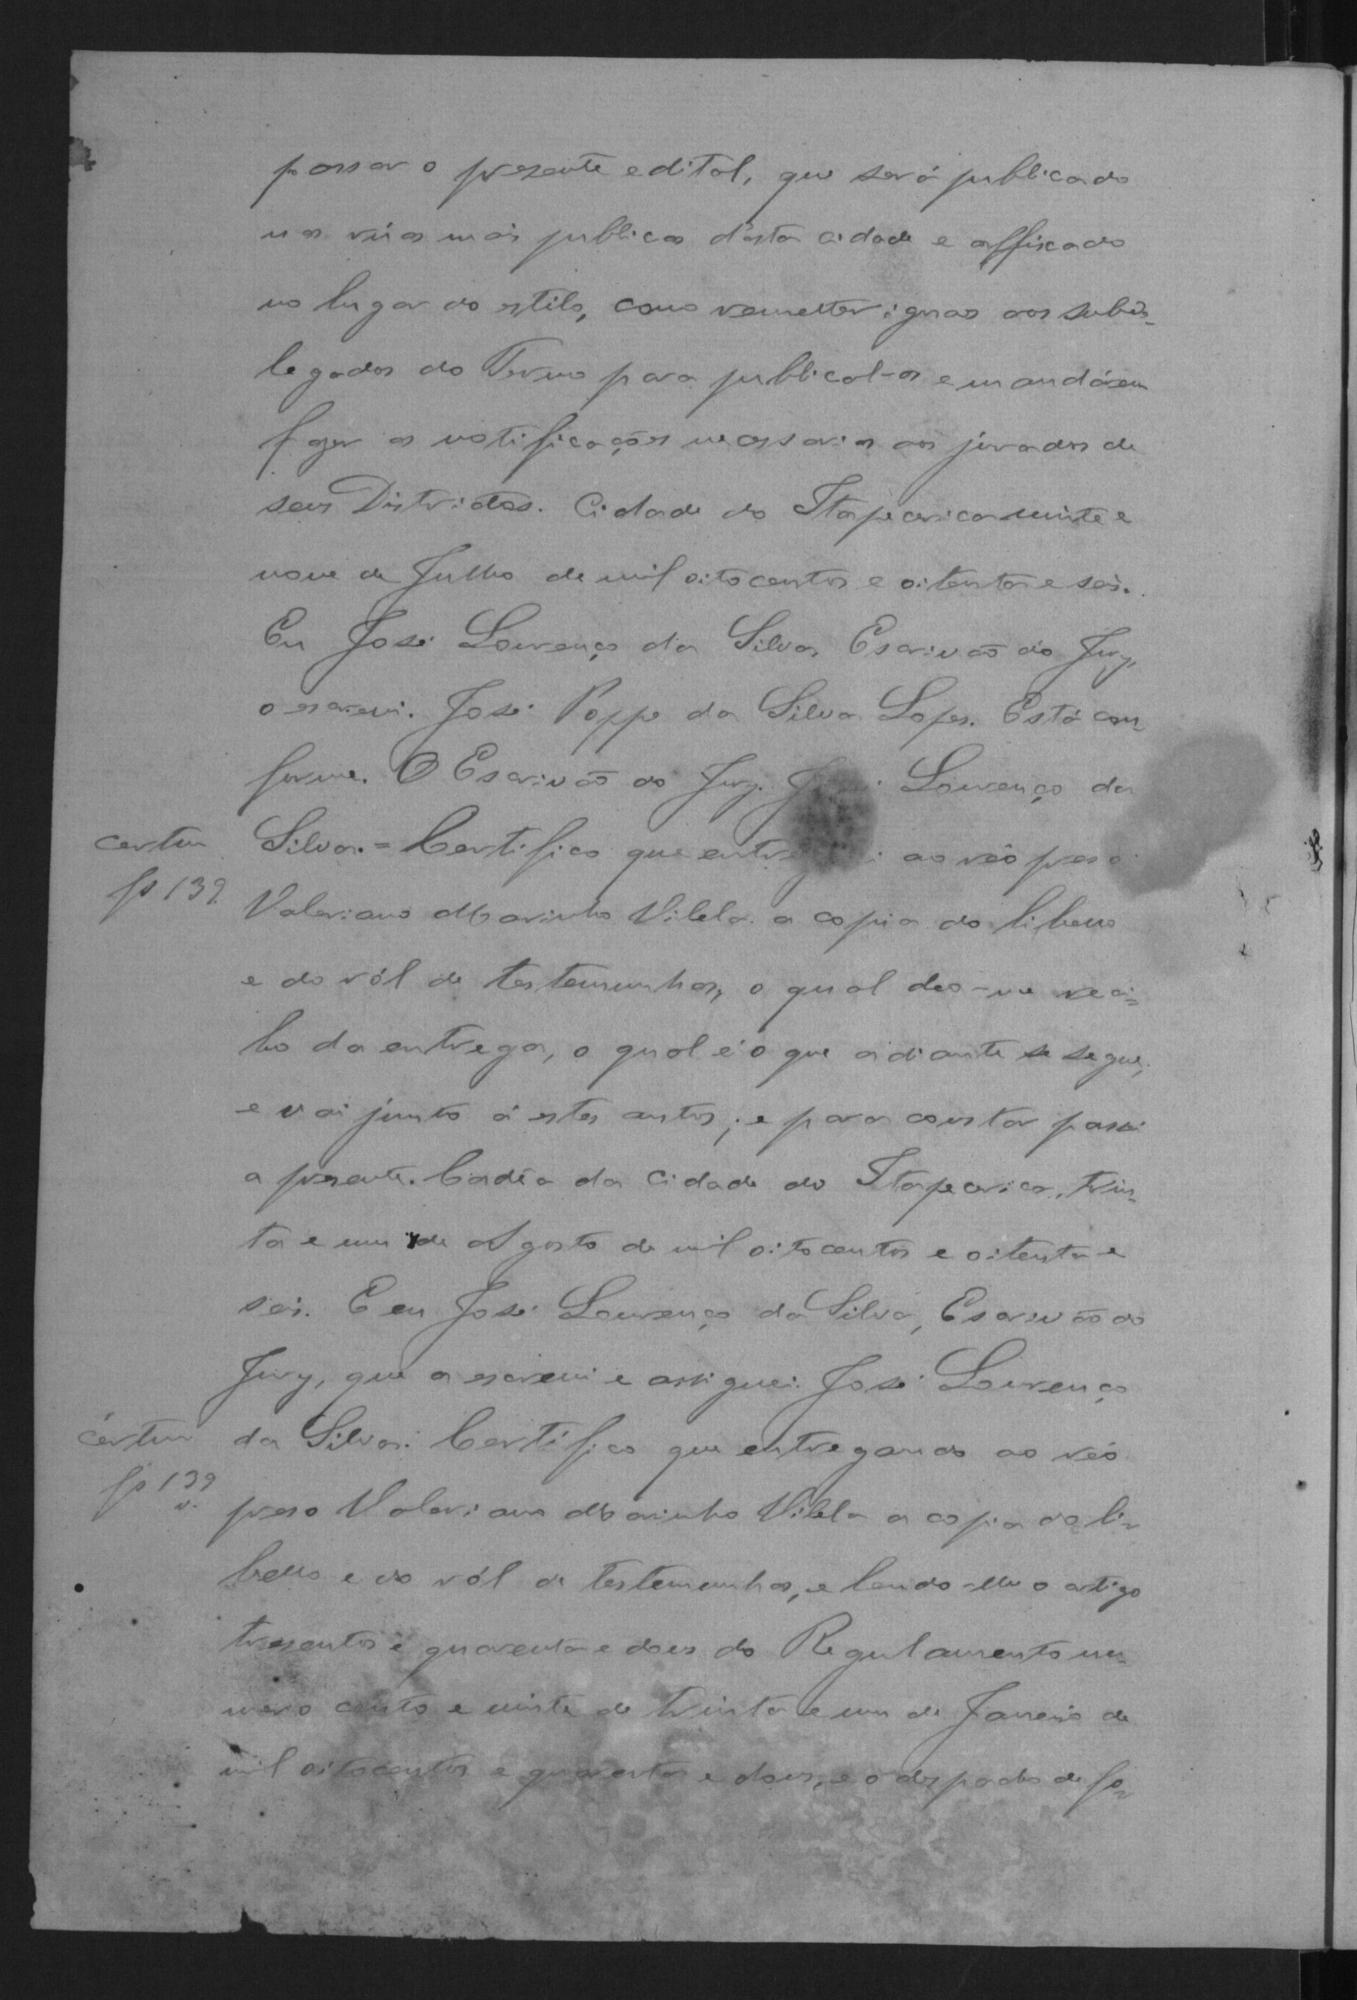 passar o prezente edital, que será publicado
nas ruas mais publicas d'esta cidade e affixado
no lugar do estilo, como remetter iguaes aos subde-
legados do Termo para publical-os e mandárem
fazer as notificações necessarias aos jurados de
seus Districtos. Cidade do Itapecerica vinte e
nove de Julho de mil oito centos e oitenta e seis.
Eu José Lourenço da Silva, Escrivão do Jury,
o escrevi. José Poppe da Silva Lopes. Está con-
forme. O Escrivão do Jury. José Lourenço da
certam Silva. = Certifico que entreguei ao réo preso
fs 139 Valeriano Marinho Vilela a copia do libello
e do ról de testemunhas, o qual deo-me reci-
bo da entrega, o qual é o que adiante se segue,
e vai junto á estes autos; e para constar passei
a presente. Cadêa da Cidade do Itapecerica, trin-
ta e um de Agosto de mil oito centos e oitenta e
seis. E eu José Lourenço da Silva, Escrivão do
Jury, que a escrevi e assignei. José Lourenço
certam da Silva. Certifico que entregando ao réo
fs 139 v. preso Valeriano Marinho Vilela a copia do li-
bello e do ról de testemunhas, e lendo-lhe o artigo
tresentos e quarenta e dous do Regulamento nu-
mero cento e vinte de trinta e um de Janeiro de
mil oitocentos e quarenta e dous, e o despacho de fo-